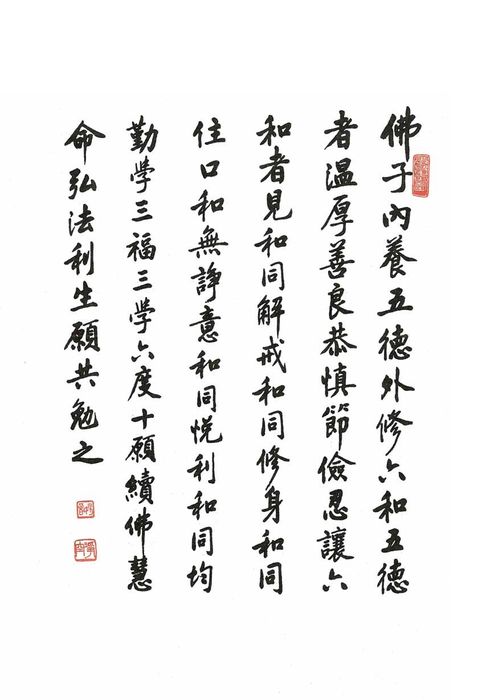 佛子內養五德外修六和五德
者溫厚善良恭慎節儉忍讓六
和者見和同解戒和同修身和同
住口和無諍意和同悅利和同均
勤學三福三學六度十願續佛慧
命弘法利生願共勉之